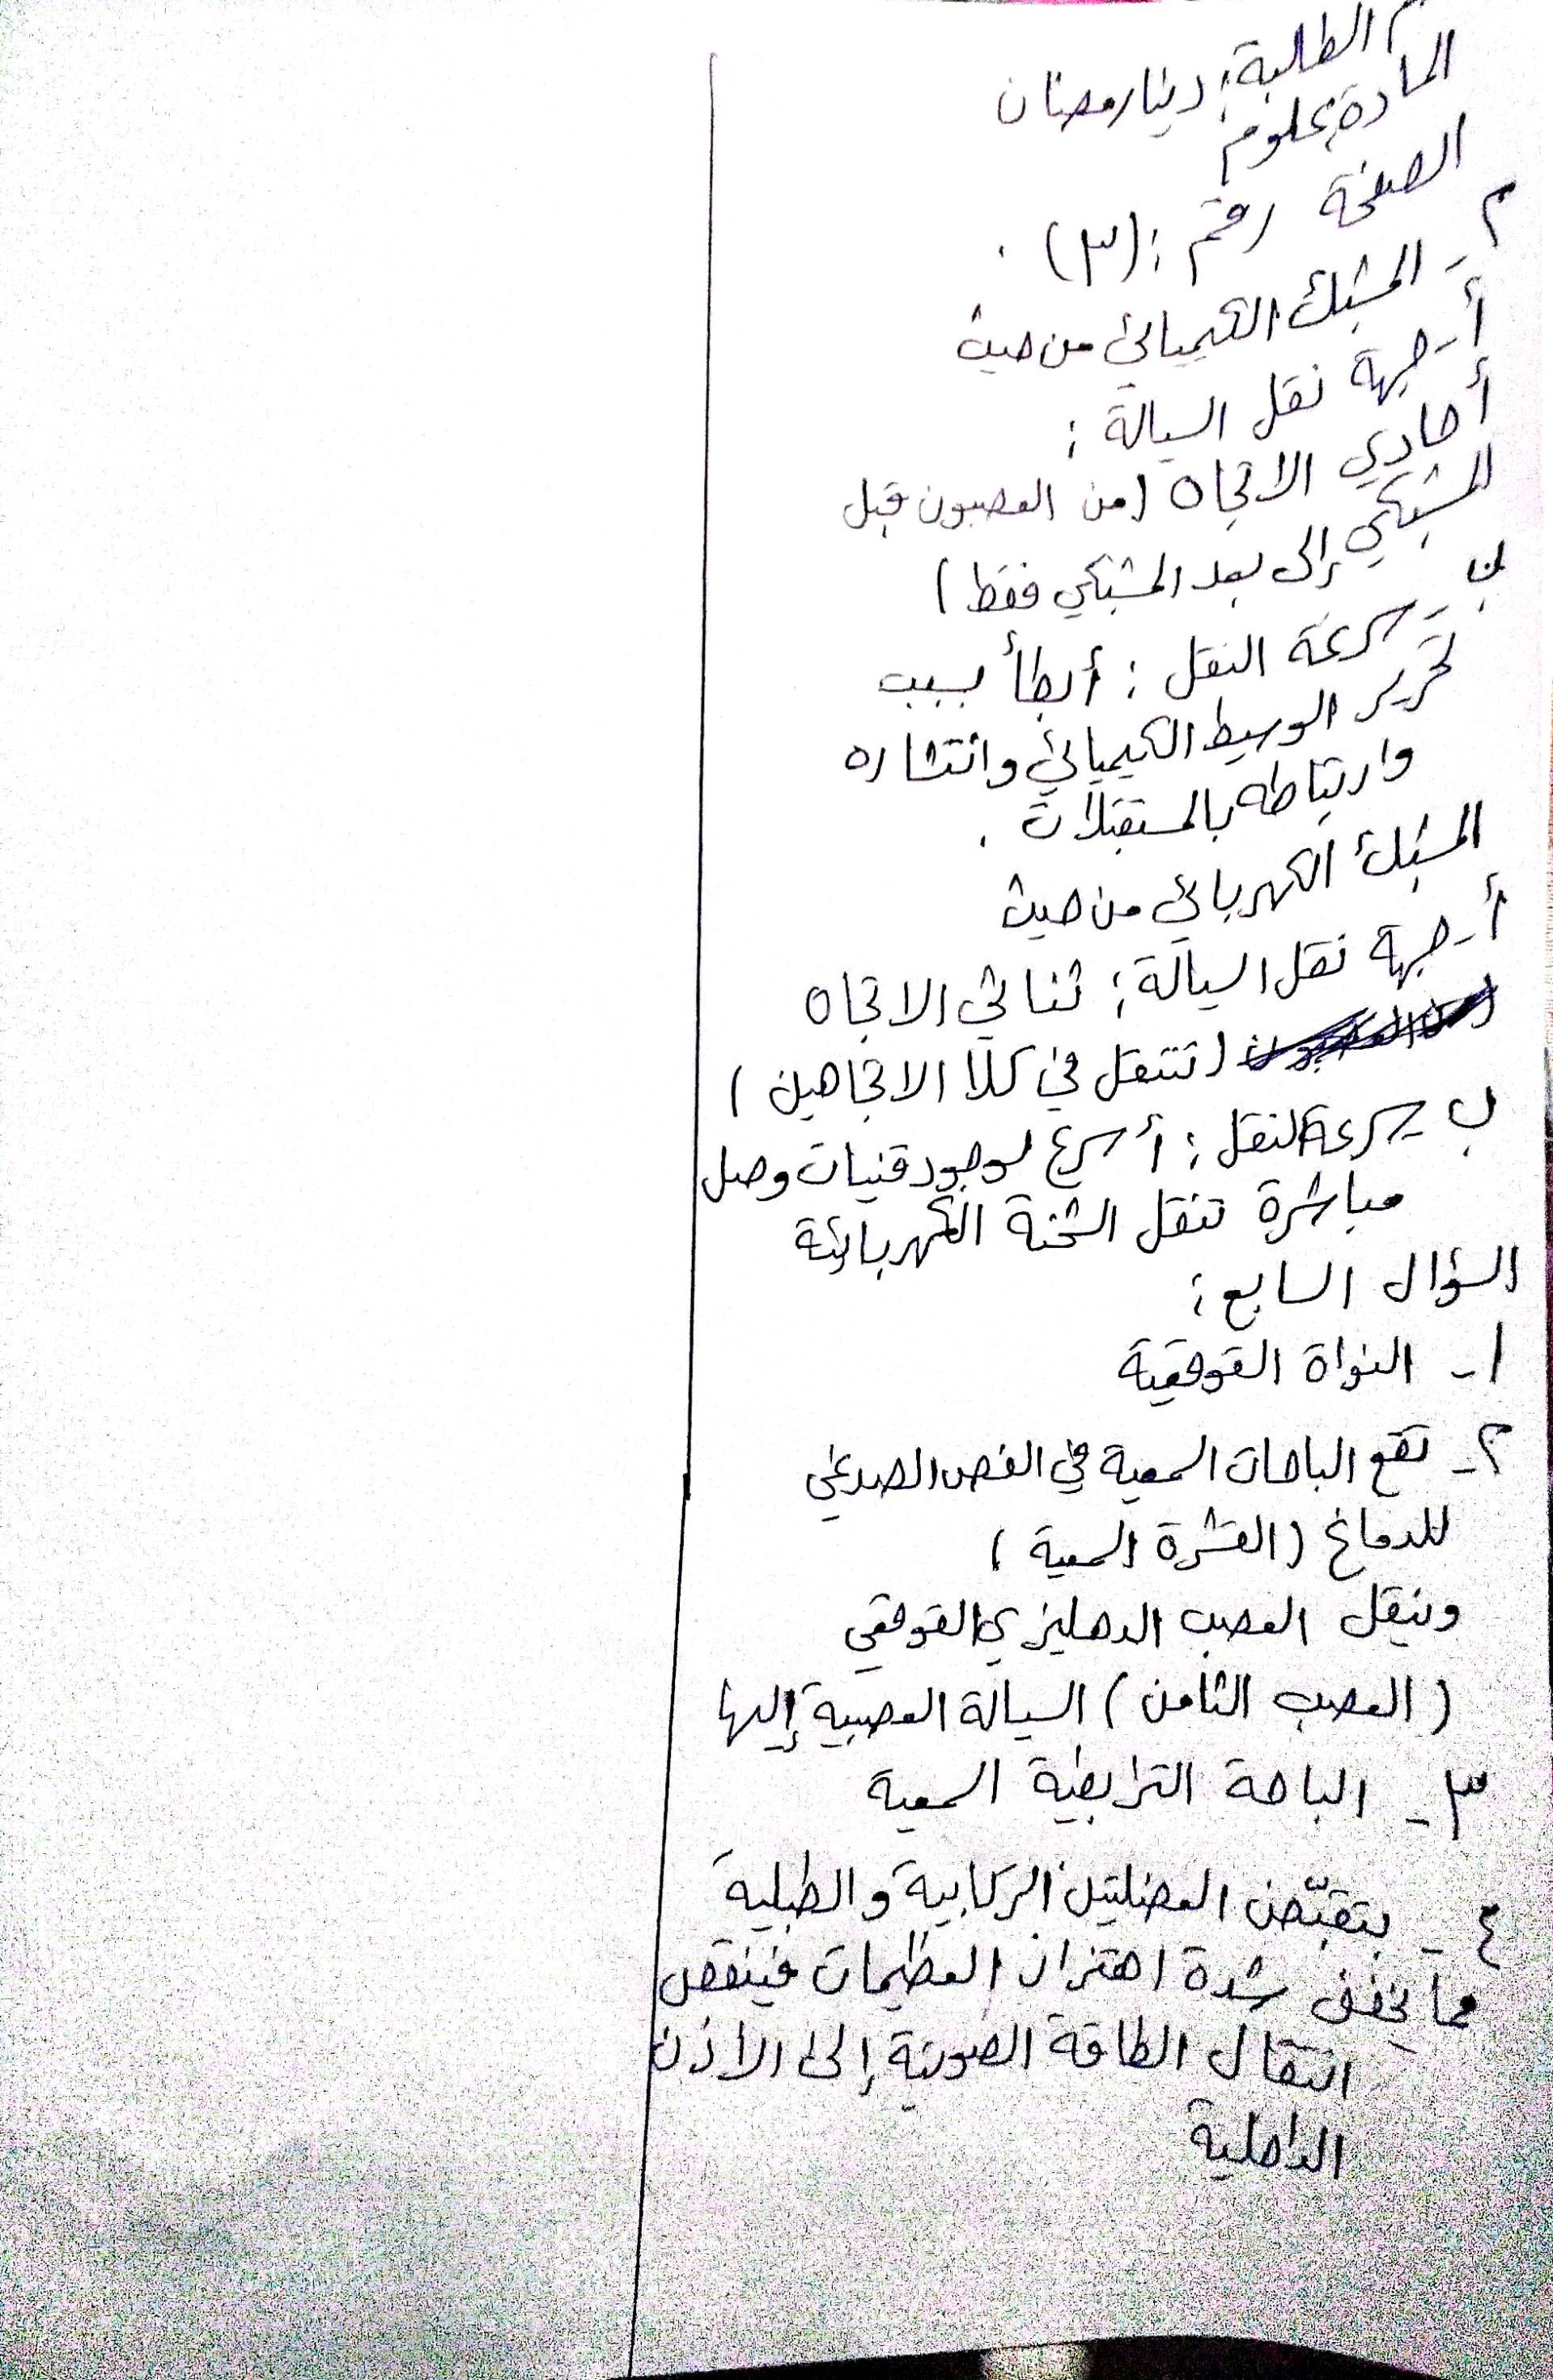 م الطالبة: دينا رمضان
المادة: علوم
الصفحة رقم: (٣).
٢ـ المشبك الكيميائي من حيث
أ- جهة نقل السيالة:
أحادي الاتجاه (من العصبون قبل
المشبكي إلى بعد المشبكي فقط)
ب- سرعة النقل: أبطأ بسبب
تحرير الوسيط الكيميائي وانتشاره
وارتباطه بالمستقبلات.
المشبك الكهربائي من حيث
أ- جهة نقل السيالة: ثنائي الاتجاه
(تنتقل في كلا الاتجاهين)
ب- سرعة النقل: أسرع لوجود قنيات وصل
مباشرة تنقل الشحنة الكهربائية
السؤال السابع:
١- النواة القوقعية
٢- تقع الباحات السمعية في الفص الصدغي
للدماغ (القشرة السمعية)
وينقل العصب الدهليزي القوقعي
(العصب الثامن) السيالة العصبية إليها
٣- الباحة الترابطية السمعية
٤- بتقبّض العضلتين الركابية والطبلية
مما يخفف شدة اهتزاز العظيمات فينقص
انتقال الطاقة الصوتية إلى الاذن
الداخلية